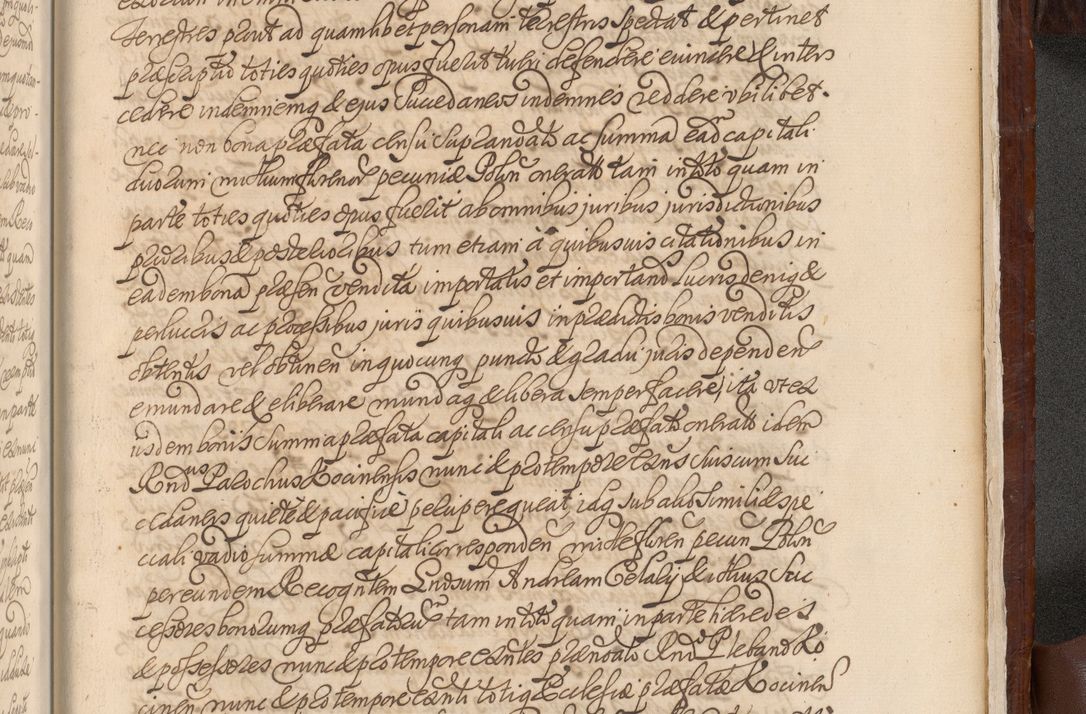 Terrestres prout ad quamlibet personam terrestris spectat & pertinet
præscriptio toties quoties opus fuerit tueri defendere evincere & inter
cedere indemniemq & ejus Succedaneos indemnes reddere ubilibet.
nec non bona præfata censu supranotato ac summa ead capitali
duorum millium florenor pecuniæ Polon onerato tam in toto quam in
parte toties quoties opus fuerit ab omnibus juribus jurisdictionibus
prioribus & posterioribus tum etiam à quibusvis citationibus in
eadem bona præsen vendita importatis et importand lucris deniq &
perlucris ac processibus juris quibusvis in prædictis bonis venditis
obtentis vel obtinen in quocunq puncto & gradu juris dependen
emundare & eliberare mundaq & libera semper facere, ita ut ex
iisdem bonis summa præfata capitali ac censu præfato onerato idem
Rndus Parochus Kocinensis nunc & pro tempore exns suis cum Suc
cedaneis quiete & pacifice percipere queat idq sub alio simili & spe
ciali vadio summæ capitali corresponden mille floren pecun Polon
per eundem Recognitem Andream & illius Suc
cessores bonorumq præfator tam in toto quam in parte hæredes
& possessores nunc & pro tempore exntes prænotato Rndo Plebano Ko
cinen nunc & pro tempore exnti totiq Ecclesiæ præfatæ Kocinen